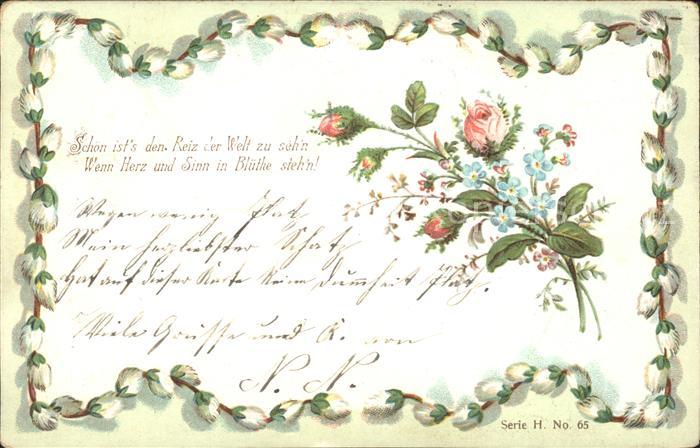 Schön ist's den Reiz der Welt zu seh'n
Wenn Herz und Sinn in Blüthe steh'n!
Wegen wenig Platz
Mein herzliebster Schatz
Hat auf dieser Karte keine Dummheit Platz.
Viele Grüsse und K. von
N. N.
Serie H. No. 65